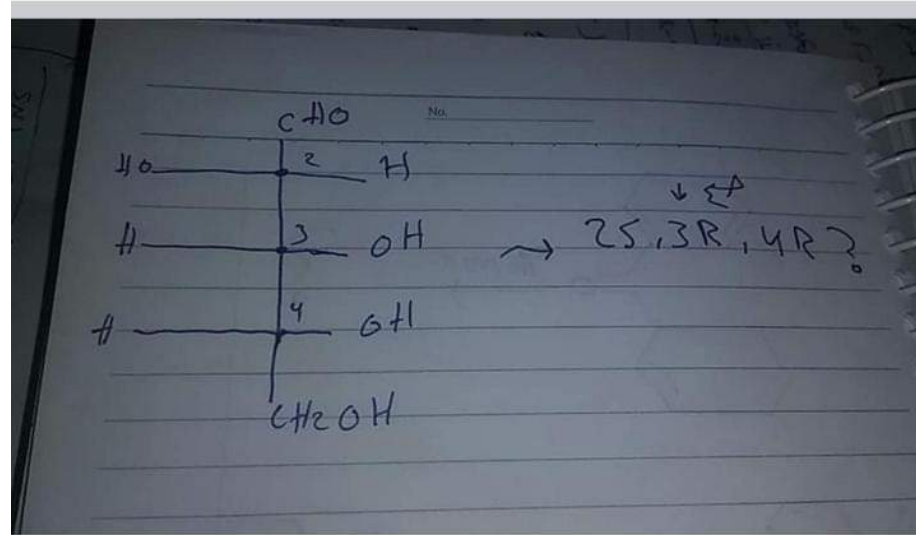 No.
CHO
HO 2 H
H 3 OH → 2S, 3R, 4R?
H 4 OH
CH2OH